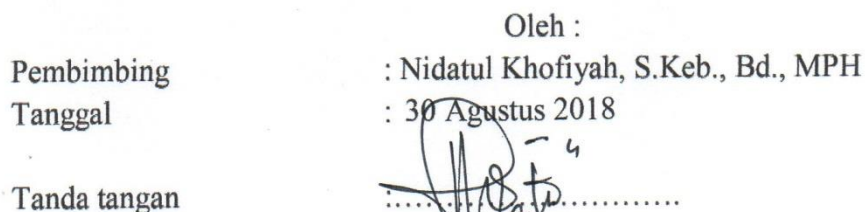 Oleh :
Pembimbing : Nidatul Khofiyah, S.Keb., Bd., MPH
Tanggal : 30 Agustus 2018
Tanda tangan :.......................